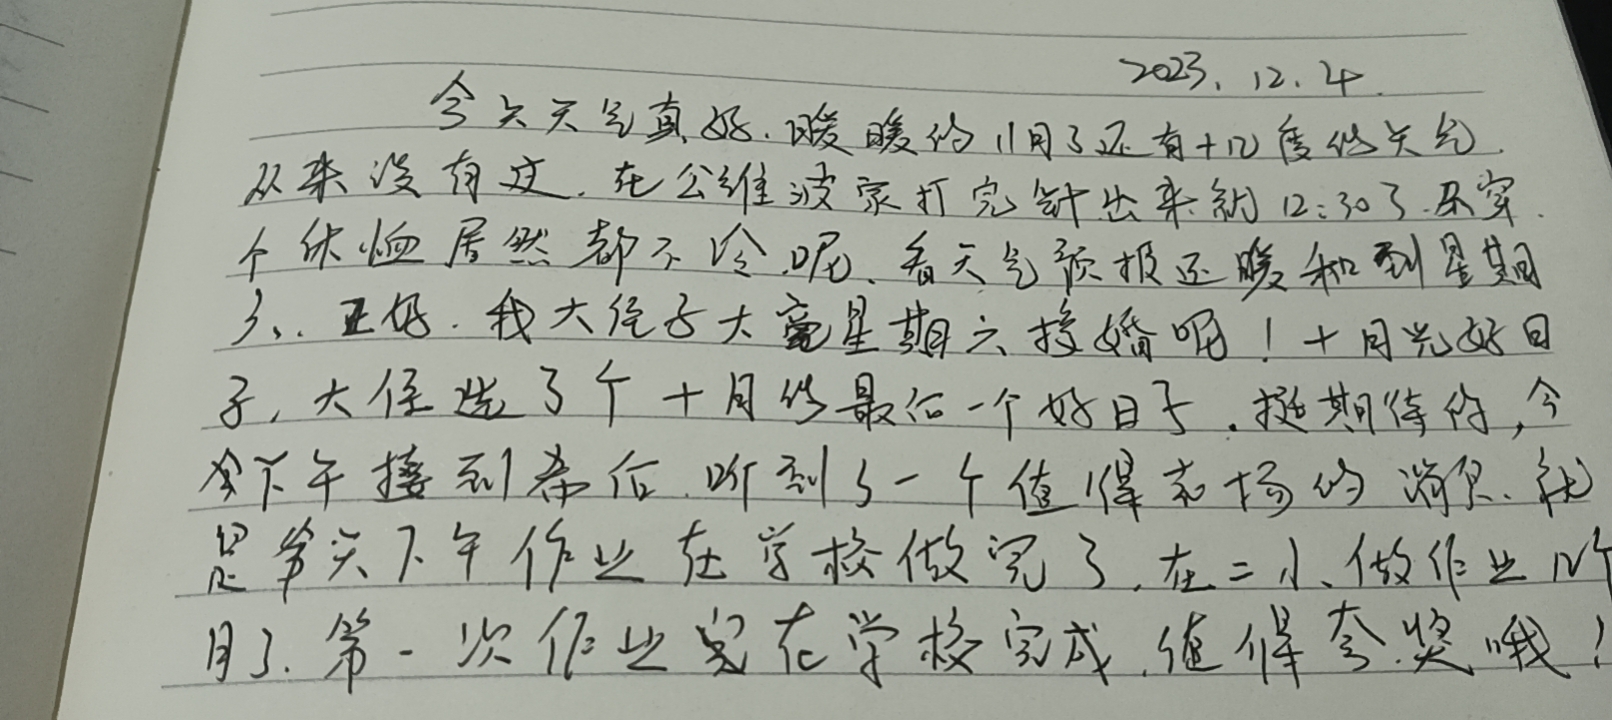 2023.12.4.
今天天气真好.暖暖的11月了还有十几度的天气.
从来没有过.在公维波家打完针出来约12:30了.只穿.
个休恤居然都不冷呢、看天气预报还暖和到星期
六.正好.我大侄子大星期六接婚呢!十月光好日
子,大侄选了个十月份最后一个好日子.挺期待的,今
今下午接到希后.听到了一个值得表扬的消息.就
是今天下午作业在学校做完了.在二小、做作业几个
月了.第一次作业在学校完成.值得夸奖哦!